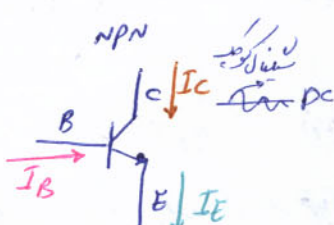 NPN
سیگنال کوچک
C
IC
DC
B
IB
E
IE